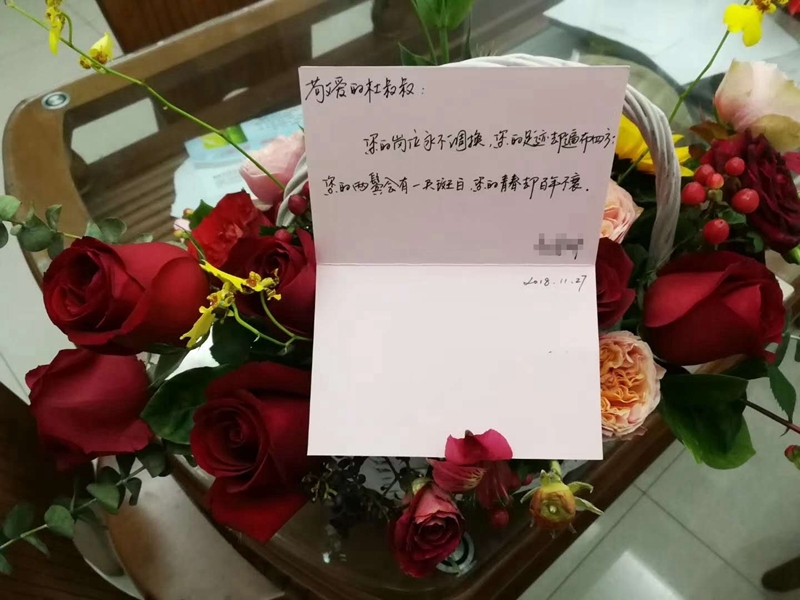 敬爱的杜叔叔：
您的岗位永不调换，您的足迹却遍布四方；
您的两鬓会有一天斑白，您的青春却百年不衰。
2018.11.27